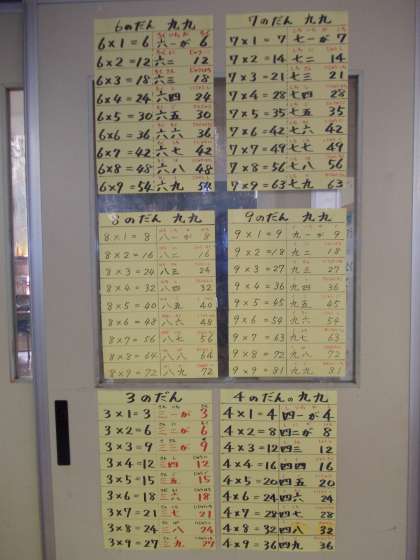 6のだん 九九
6×1=6 六一が 6
6×2=12 六二 12
6×3=18 六三 18
6×4=24 六四 24
6×5=30 六五 30
6×6=36 六六 36
6×7=42 六七 42
6×8=48 六八 48
6×9=54 六九 54
7のだん 九九
7×1=7 七一が 7
7×2=14 七二 14
7×3=21 七三 21
7×4=28 七四 28
7×5=35 七五 35
7×6=42 七六 42
7×7=49 七七 49
7×8=56 七八 56
7×9=63 七九 63
8のだん 九九
8×1=8 八一が 8
8×2=16 八二 16
8×3=24 八三 24
8×4=32 八四 32
8×5=40 八五 40
8×6=48 八六 48
8×7=56 八七 56
8×8=64 八八 64
8×9=72 八九 72
9のだん 九九
9×1=9 九一が 9
9×2=18 九二 18
9×3=27 九三 27
9×4=36 九四 36
9×5=45 九五 45
9×6=54 九六 54
9×7=63 九七 63
9×8=72 九八 72
9×9=81 九九 81
3のだん 九九
3×1=3 三一が 3
3×2=6 三二が 6
3×3=9 三三が 9
3×4=12 三四 12
3×5=15 三五 15
3×6=18 三六 18
3×7=21 三七 21
3×8=24 三八 24
3×9=27 三九 27
4のだんの 九九
4×1=4 四一が 4
4×2=8 四二が 8
4×3=12 四三 12
4×4=16 四四 16
4×5=20 四五 20
4×6=24 四六 24
4×7=28 四七 28
4×8=32 四八 32
4×9=36 四九 36